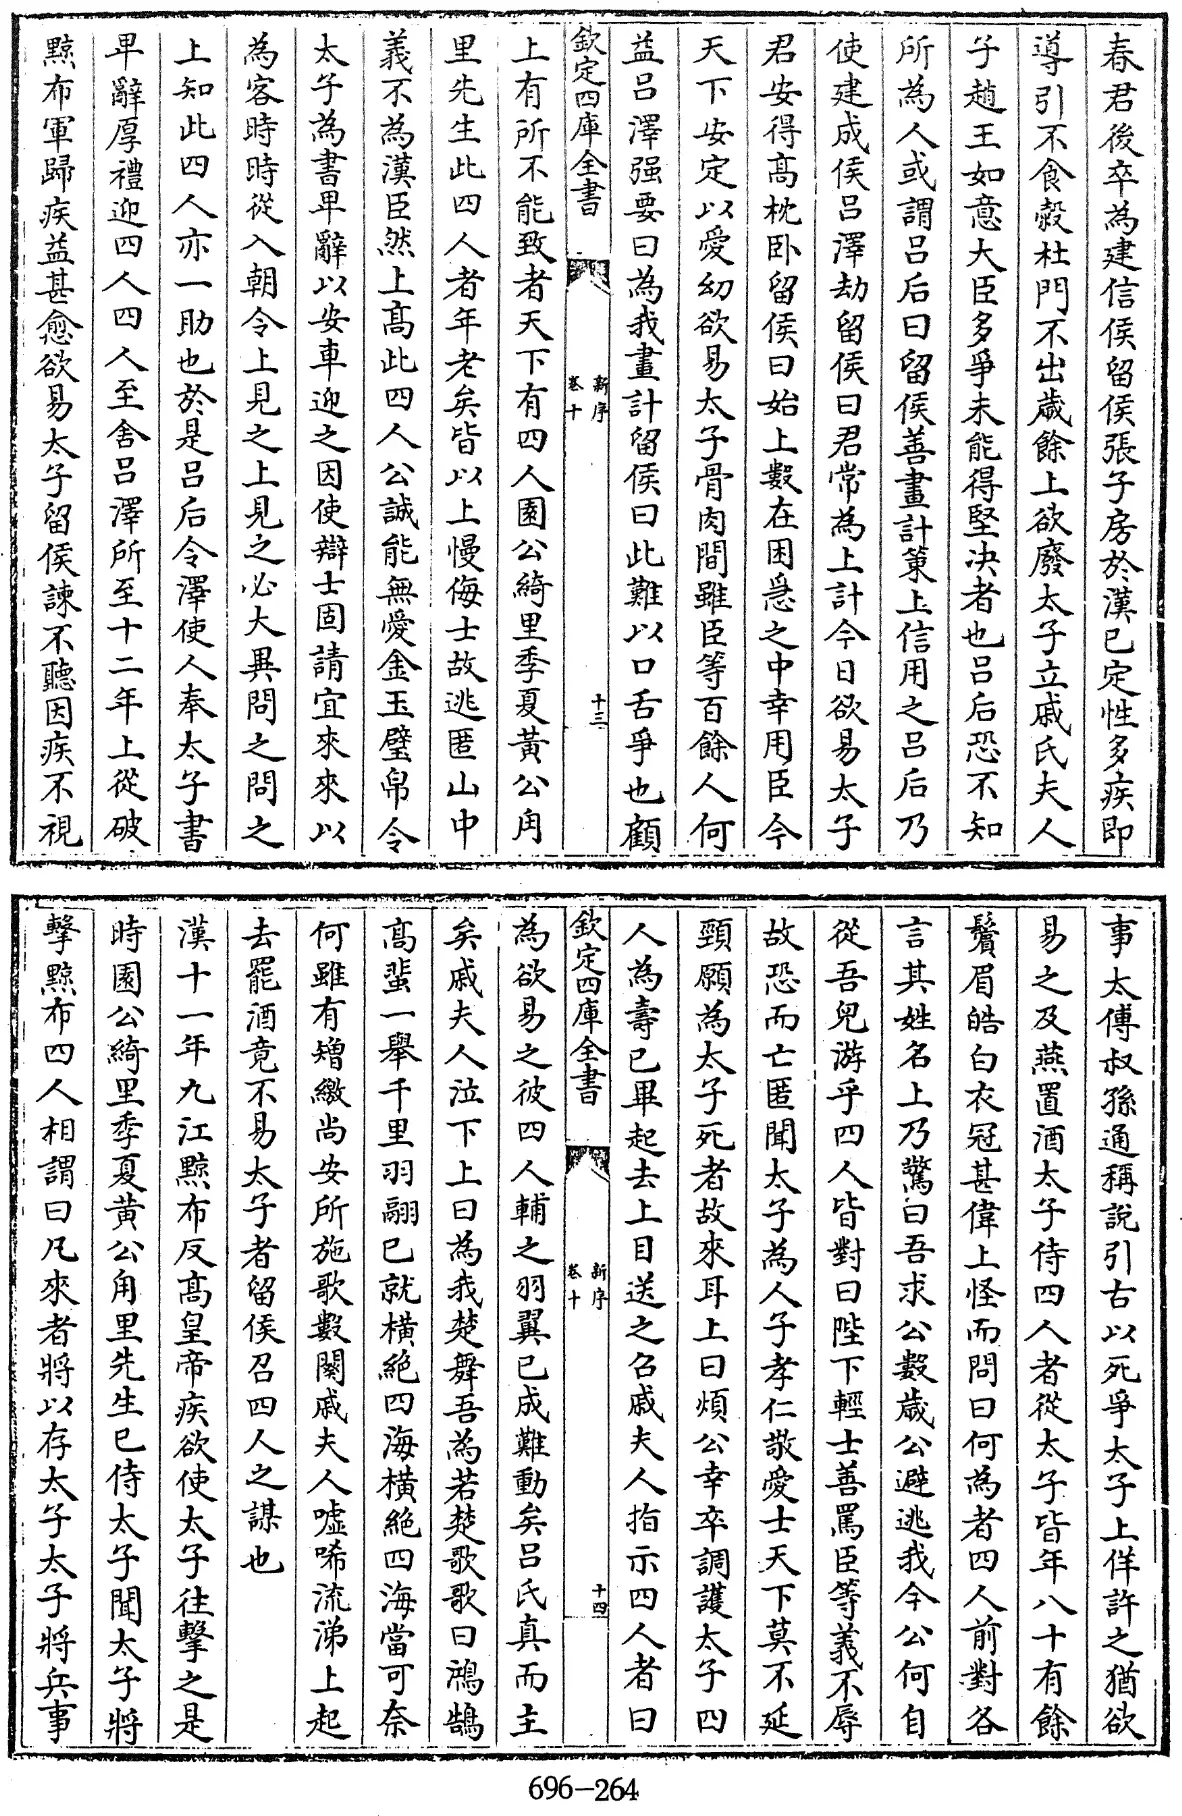 春君後卒為建信侯留侯張子房於漢已定性多疾即
導引不食榖杜門不出歲餘上欲廢太子立戚氏夫人
子趙王如意大臣多爭未能得堅决者也吕后恐不知
所為人或謂吕后曰留侯善畫計策上信用之吕后乃
使建成侯吕澤劫留侯曰君常為上計今日欲易太子
君安得髙枕卧留侯曰始上數在困急之中幸用臣今
天下安定以愛幼欲易太子骨肉間雖臣等百餘人何
益吕澤强要曰為我畫計留侯曰此難以口舌爭也顧
欽定四庫全書
新序
卷十
十三
上有所不能致者天下有四人園公綺里季夏黄公甪
里先生此四人者年老矣皆以上慢侮士故逃匿山中
義不為漢臣然上髙此四人公誠能無愛金玉璧帛令
太子為書卑辭以安車迎之因使辯士固請宜來來以
為客時時從入朝令上見之上見之必大異問之問之
上知此四人亦一助也於是吕后令澤使人奉太子書
卑辭厚禮迎四人四人至舍吕澤所至十二年上從破
黥布軍歸疾益甚愈欲易太子留侯諫不聽因疾不視
事太傅叔孫通稱說引古以死爭太子上佯許之猶欲
易之及燕置酒太子侍四人者從太子皆年八十有餘
鬚眉皓白衣冠甚偉上怪而問曰何為者四人前對各
言其姓名上乃驚曰吾求公數歲公避逃我今公何自
從吾兒游乎四人皆對曰陛下輕士善罵臣等義不辱
故恐而亡匿聞太子為人子孝仁敬愛士天下莫不延
頸願為太子死者故來耳上曰煩公幸卒調護太子四
人為壽已畢起去上目送之召戚夫人指示四人者曰
欽定四庫全書
新序
卷十
十四
為欲易之彼四人輔之羽翼已成難動矣吕氏真而主
矣戚夫人泣下上曰為我楚舞吾為若楚歌歌曰鴻鵠
髙蜚一舉千里羽翮已就横絶四海横絶四海當可奈
何雖有矰繳尚安所施歌數闋戚夫人嘘唏流涕上起
去罷酒竟不易太子者留侯召四人之謀也
漢十一年九江黥布反髙皇帝疾欲使太子往擊之是
時園公綺里季夏黄公甪里先生已侍太子聞太子將
擊黥布四人相謂曰凡來者將以存太子太子將兵事
696-264